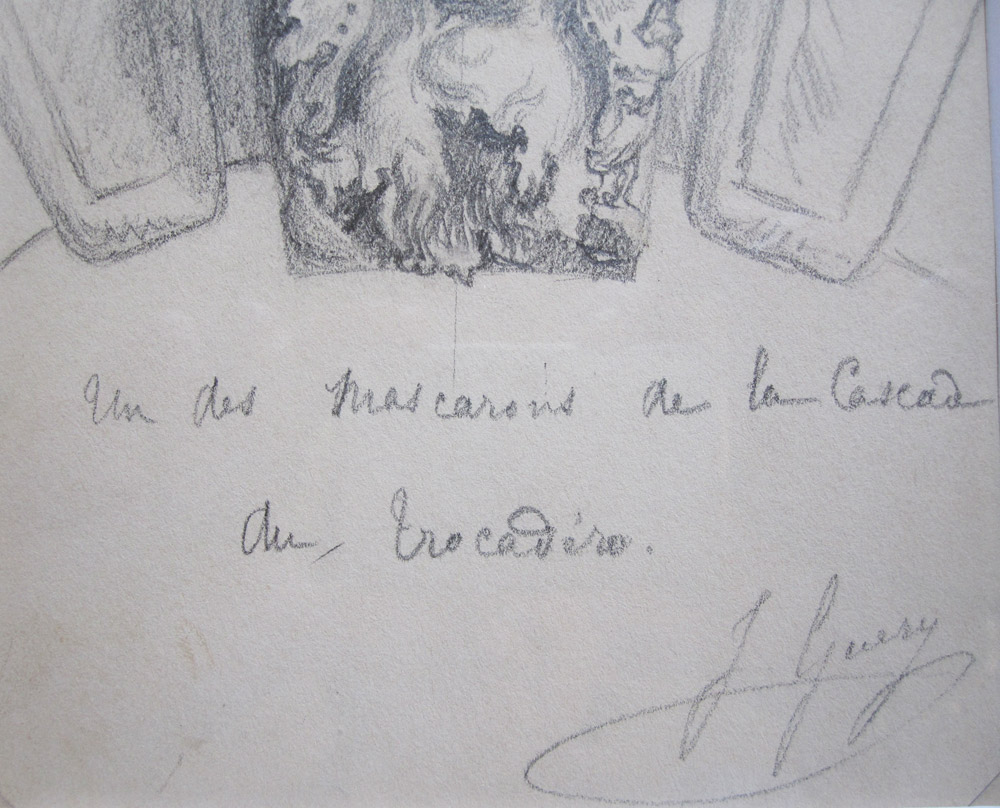 Un des Mascarons de la Cascad
du Trocadéro.
J Guery